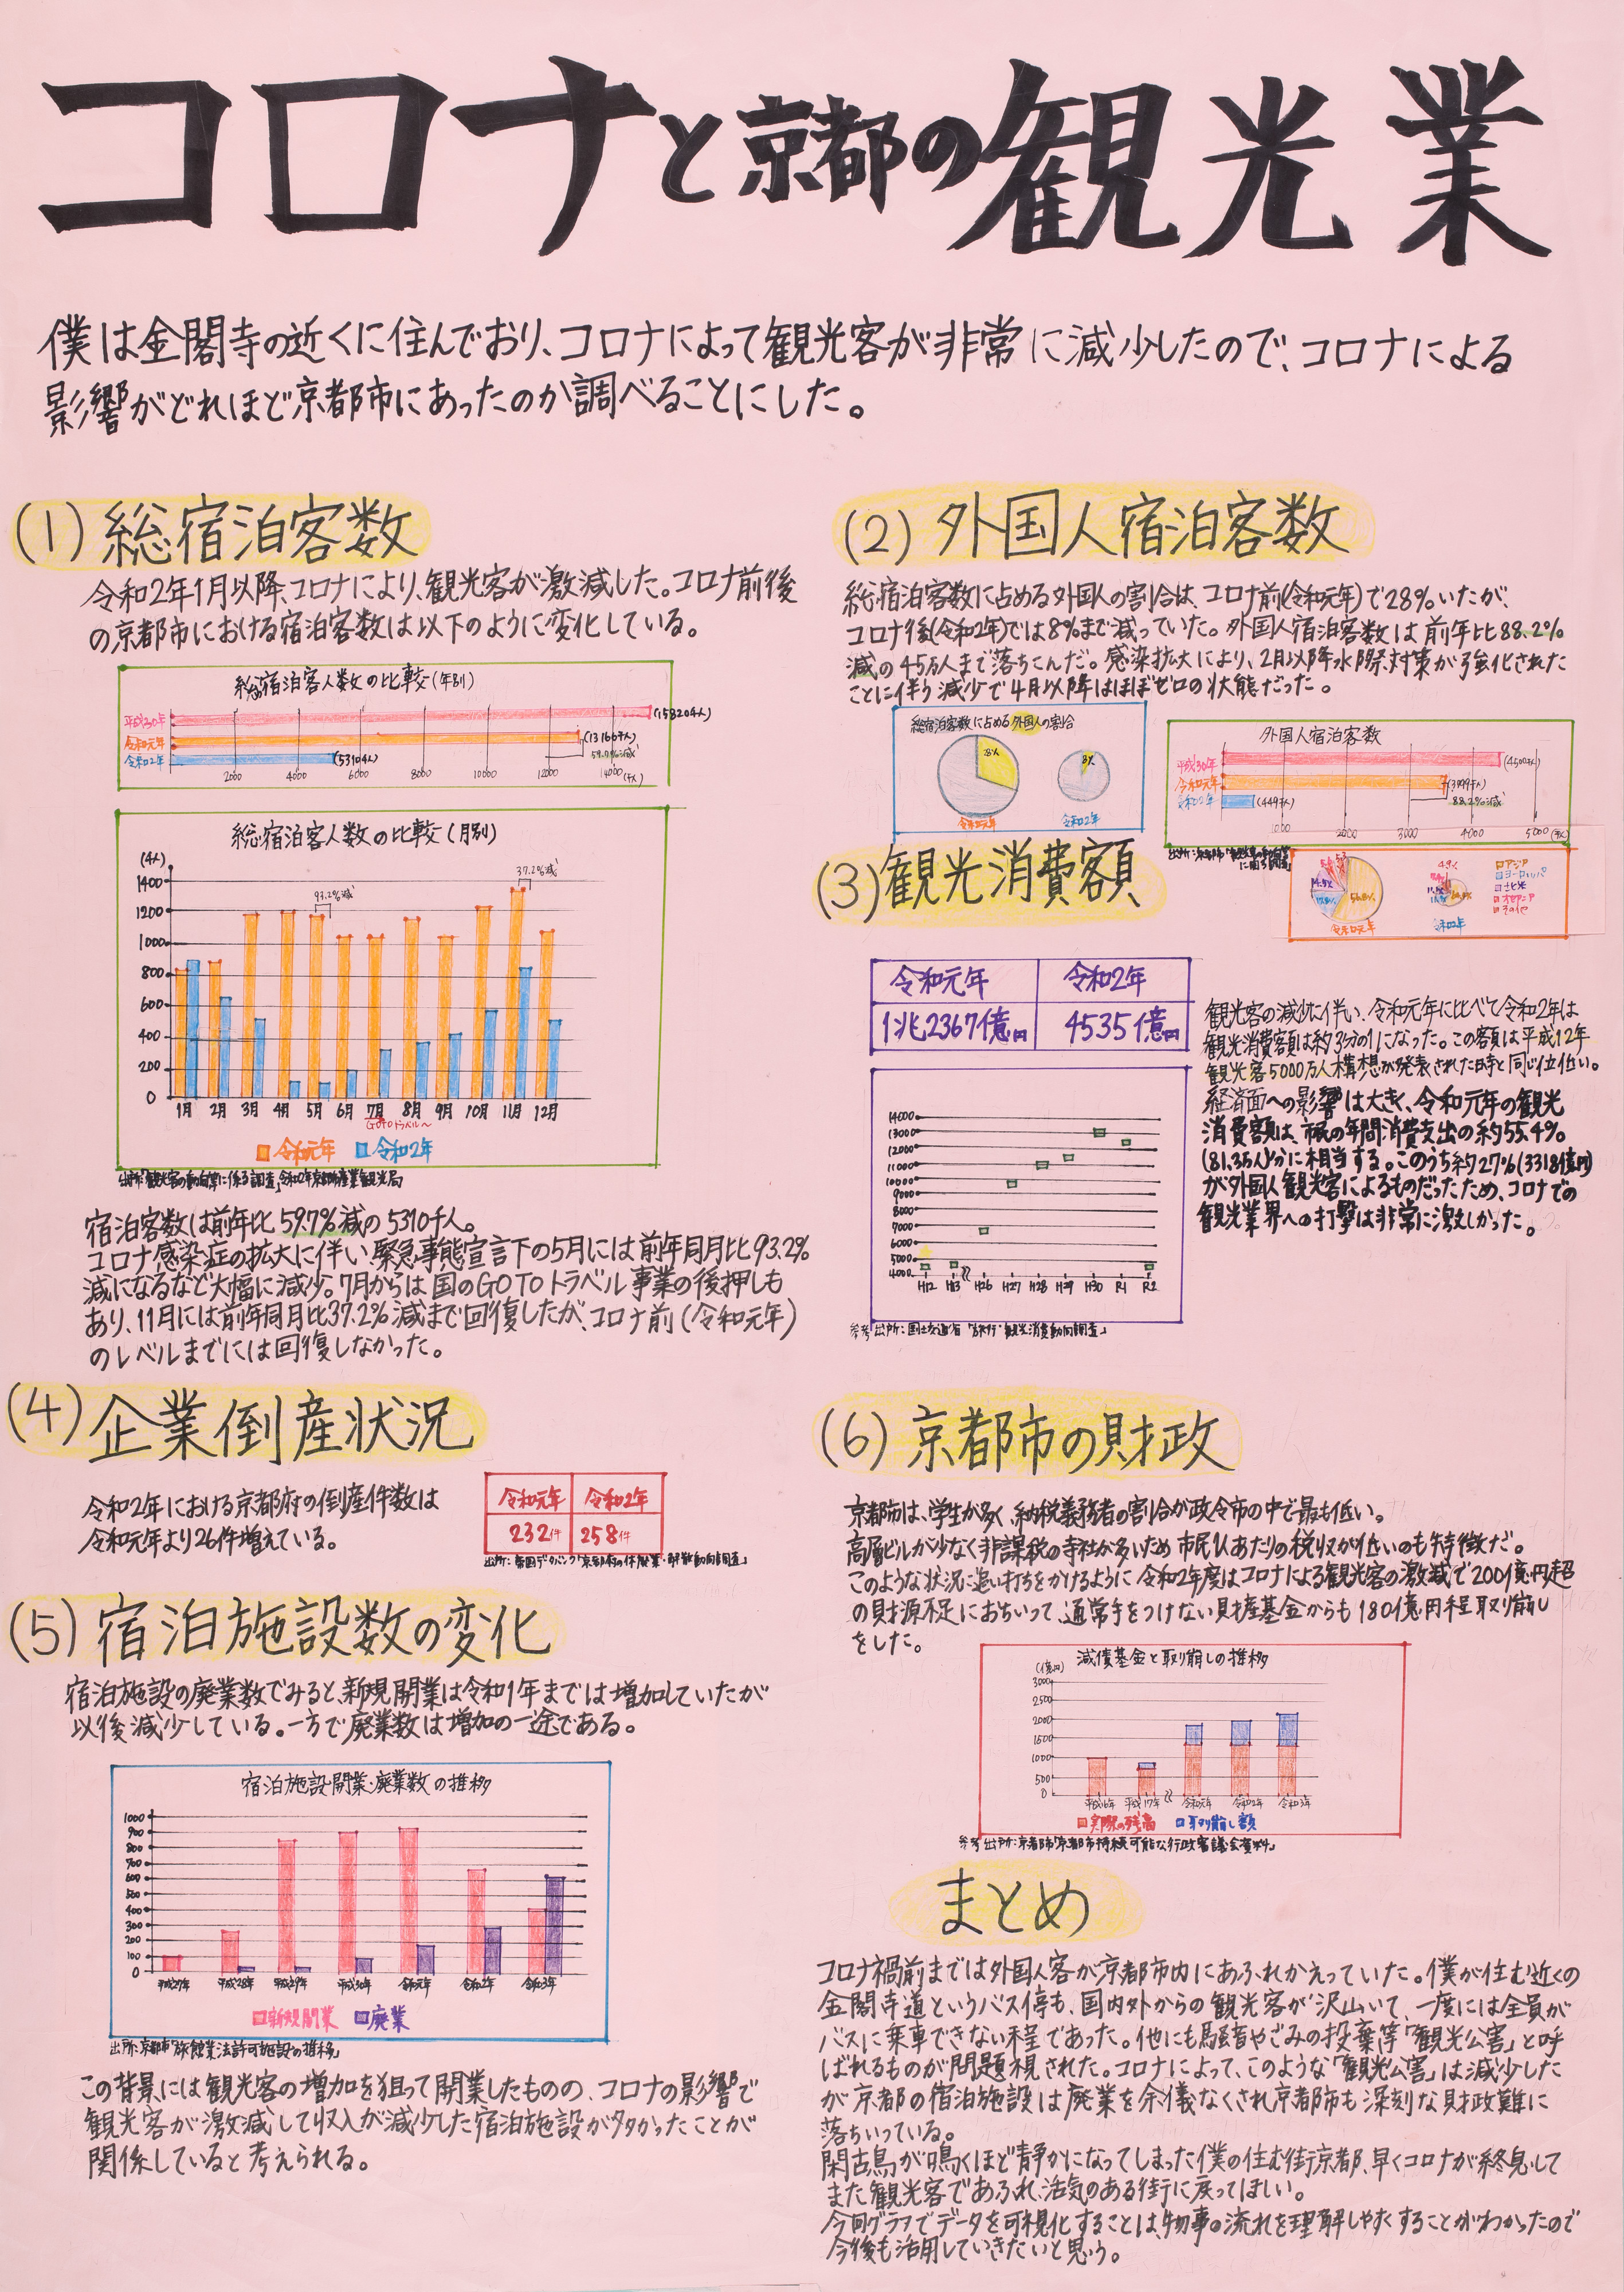 コロナと京都の観光業
僕は金閣寺の近くに住んでおり、コロナによって観光客が非常に減少したので、コロナによる
影響がどれほど京都市にあったのか調べることにした。
(1) 総宿泊客数
令和2年1月以降、コロナにより、観光客が激減した。コロナ前後
の京都市における宿泊客数は以下のように変化している。
総宿泊客人数の比較(年別)
平成30年 (15820千人)
令和元年 (13166千人)
59.7%減
令和2年 (5310千人)
2000 4000 6000 8000 10000 12000 14000 (千人)
総宿泊客人数の比較(月別)
(千人)
1400
1200
1000
800
600
400
200
0
93.2%減
37.2%減
1月 2月 3月 4月 5月 6月 7月 8月 9月 10月 11月 12月
GOTOトラベル~
令和元年 令和2年
宿泊客数は前年比59.7%減の5310千人。
コロナ感染症の拡大に伴い、緊急事態宣言下の5月には前年同月比93.2%
減になるなど大幅に減少。7月からは国のGO TOトラベル事業の後押しも
あり、11月には前年同月比37.2%減まで回復したが、コロナ前(令和元年)
のレベルまでには回復しなかった。
(2) 外国人宿泊客数
総宿泊客数に占める外国人の割合は、コロナ前(令和元年)で28%いたが、
コロナ後(令和2年)では8%まで減っていた。外国人宿泊客数は前年比88.2%
減の45万人まで落ちこんだ。感染拡大により、2月以降水際対策が強化された
ことに伴う減少で4月以降はほぼゼロの状態だった。
総宿泊客数に占める外国人の割合
28%
8%
令和元年 令和2年
外国人宿泊客数
平成30年 (4500千人)
令和元年
88.2%減
令和2年 (449千人)
1000 2000 3000 4000 5000 (千人)
アジア
ヨーロッパ
北米
オセアニア
その他
令和元年 令和2年
(3) 観光消費額
令和元年 令和2年
1兆2367億円 4535億円
観光客の減少に伴い、令和元年に比べて令和2年は
観光消費額は約3分の1になった。この額は平成12年
観光客5000万人構想が発表された時と同じ位低い。
経済面への影響は大きく、令和元年の観光
消費額は、市民の年間消費支出の約55.4%
(81.3万人)分に相当する。このうち約27%(3318億円)
が外国人観光客によるものだったため、コロナでの
観光業界への打撃は非常に激しかった。
14000
13000
12000
11000
10000
9000
8000
7000
6000
5000
4000
H12 H13 H26 H27 H28 H29 H30 R1 R2
参考 出所:国土交通省「旅行・観光消費動向調査」
(4) 企業倒産状況
令和2年における京都府の倒産件数は
令和元年より26件増えている。
令和元年 令和2年
232件 258件
出所:帝国データバンク「京都府の休廃業・解散動向調査」
(5) 宿泊施設数の変化
宿泊施設の廃業数でみると、新規開業は令和1年までは増加していたが
以後減少している。一方で廃業数は増加の一途である。
宿泊施設開業・廃業数の推移
1000
900
800
700
600
500
400
300
200
100
0
平成27年 平成28年 平成29年 平成30年 令和元年 令和2年 令和3年
新規開業 廃業
出所:京都市「旅館業法許可施設の推移」
この背景には観光客の増加を狙って開業したものの、コロナの影響で
観光客が激減して収入が減少した宿泊施設が多かったことが
関係していると考えられる。
(6) 京都市の財政
京都市は、学生が多く、納税義務者の割合が政令市の中で最も低い。
高層ビルが少なく非課税の寺社が多いため市民1人あたりの税収が低いのも特徴だ。
このような状況に追い打ちをかけるように令和2年度はコロナによる観光客の激減で200億円超
の財源不足におちいって、通常手をつけない財産基金からも180億円程取り崩し
をした。
減債基金と取り崩しの推移
(億円)
3000
2500
2000
1500
1000
500
0
平成16年 平成17年 令和元年 令和2年 令和3年
実際の残高 取り崩し額
参考 出所:京都市「京都市持続可能な行政審議会資料」
まとめ
コロナ禍前までは外国人客が京都市内にあふれかえっていた。僕が住む近くの
金閣寺道というバス停も、国内外からの観光客が沢山いて、一度には全員が
バスに乗車できない程であった。他にも騒音やごみの投棄等「観光公害」と呼
ばれるものが問題視された。コロナによって、このような「観光公害」は減少した
が京都の宿泊施設は廃業を余儀なくされ京都市も深刻な財政難に
落ちいっている。
閑古鳥が鳴くほど静かになってしまった僕の住む街京都、早くコロナが終息して
また観光客であふれ、活気のある街に戻ってほしい。
今回グラフでデータを可視化することは、物事の流れを理解しやすくすることがわかったので
今後も活用していきたいと思う。